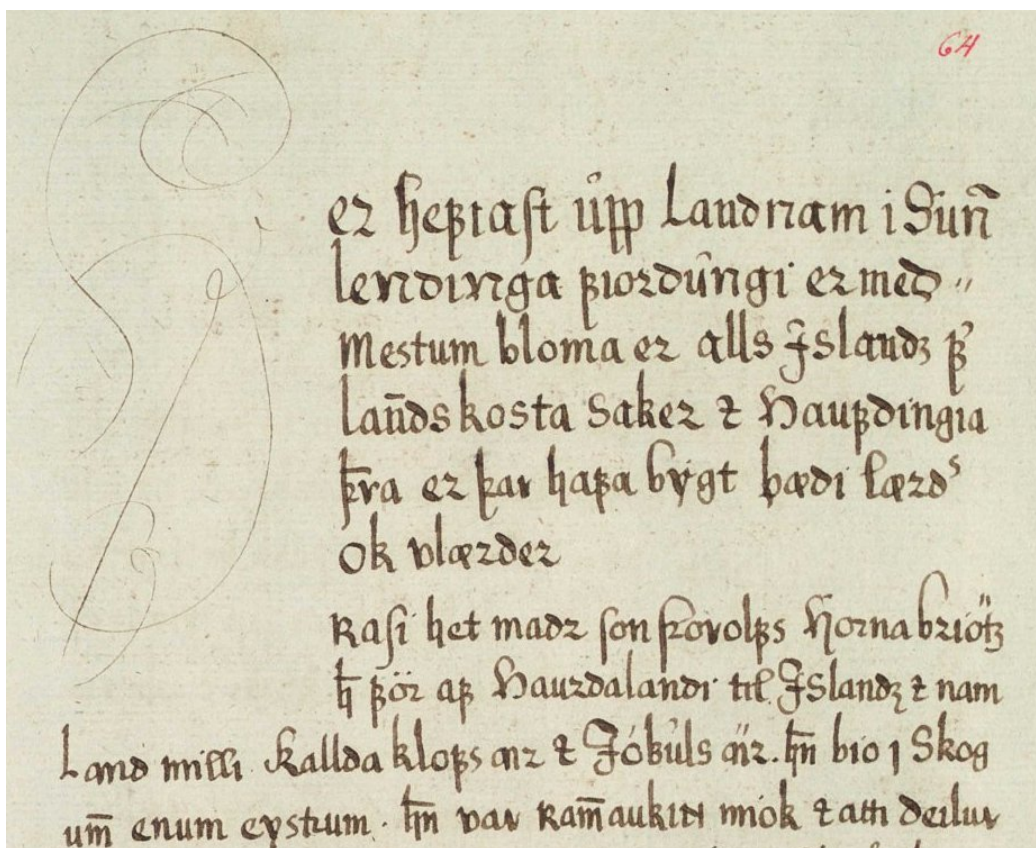 64
er hefiast ůpp Landnam i Suñ
lendinga fiordůngi er med〃
Mestum bloma er alls Jslandz f͛
lan̄ds kosta Saker ⁊ Haufdingia
þr̄ra er þar hafa bygt bædi lærdˢ
Ok vlærder
Rasi het madr son þorolfs Hornabriötz
h̄ för af Haurdalandi til Jslandz ⁊ nam
Land milli Kalldaklofs ár ⁊ Jökůls ár. hn̄ bio j Skog
um̄ enum eystrum. hn̄ var Ram̄aukiɴ miok ⁊ atti deilur